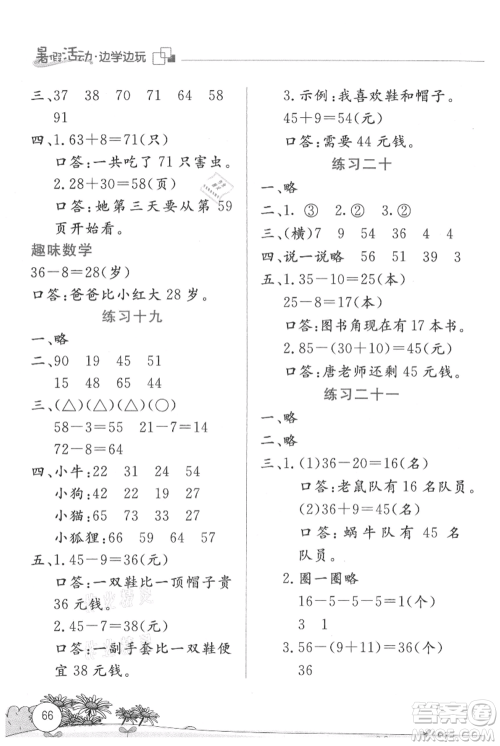 暑假活动·边学边玩
三、37 38 70 51 63 58
91
四、1.63+8=71(只)
口答:一共吃了 71 只害虫。
2.28+30=58(页)
口答:她第三天要从第 59
页开始看。
趣味数学
36-8=28(岁)
口答:爸爸比小红大 28 岁。
练习十九
一、略
二、90 19 45 51
15 48 65 44
三、(△)(△)(△)(△)
58-3=55 37+7=44
72-8=64
四、小牛:22 31 54
小狗:31 40 63
小猫:35 44 67
小狐狸:57 66 89
五、1.45-9=36(元)
口答:一双鞋比一顶帽子贵
36 元钱。
2.45-7=38(元)
口答:一副手套比一双鞋便
宜 38 元钱。
3.示例:我喜欢鞋和帽子。
45+9=54(元)
口答:需要 44 元钱。
练习二十
一、略
二、1.③ 2.② 3.②
三、(横)7 9 54 36 4 4
四、说一说略 56 51 39
五、1.35-10=25(本)
25-8=17(本)
口答:图书角现在有 17 本。
2.85-(30+10)=45(元)
口答:唐老师还剩 45 元。
练习二十一
一、略
二、略
三、1.(1)36-20=16(名)
口答:老鼠队有 16 名队员。
(2)36+9=45(名)
口答:蜗牛队有 45 名
队员。
2.圈一圈略
16-5-5-5=1(个)
3 1
口答:可以装满 3 袋,还剩 1 个。
36
66